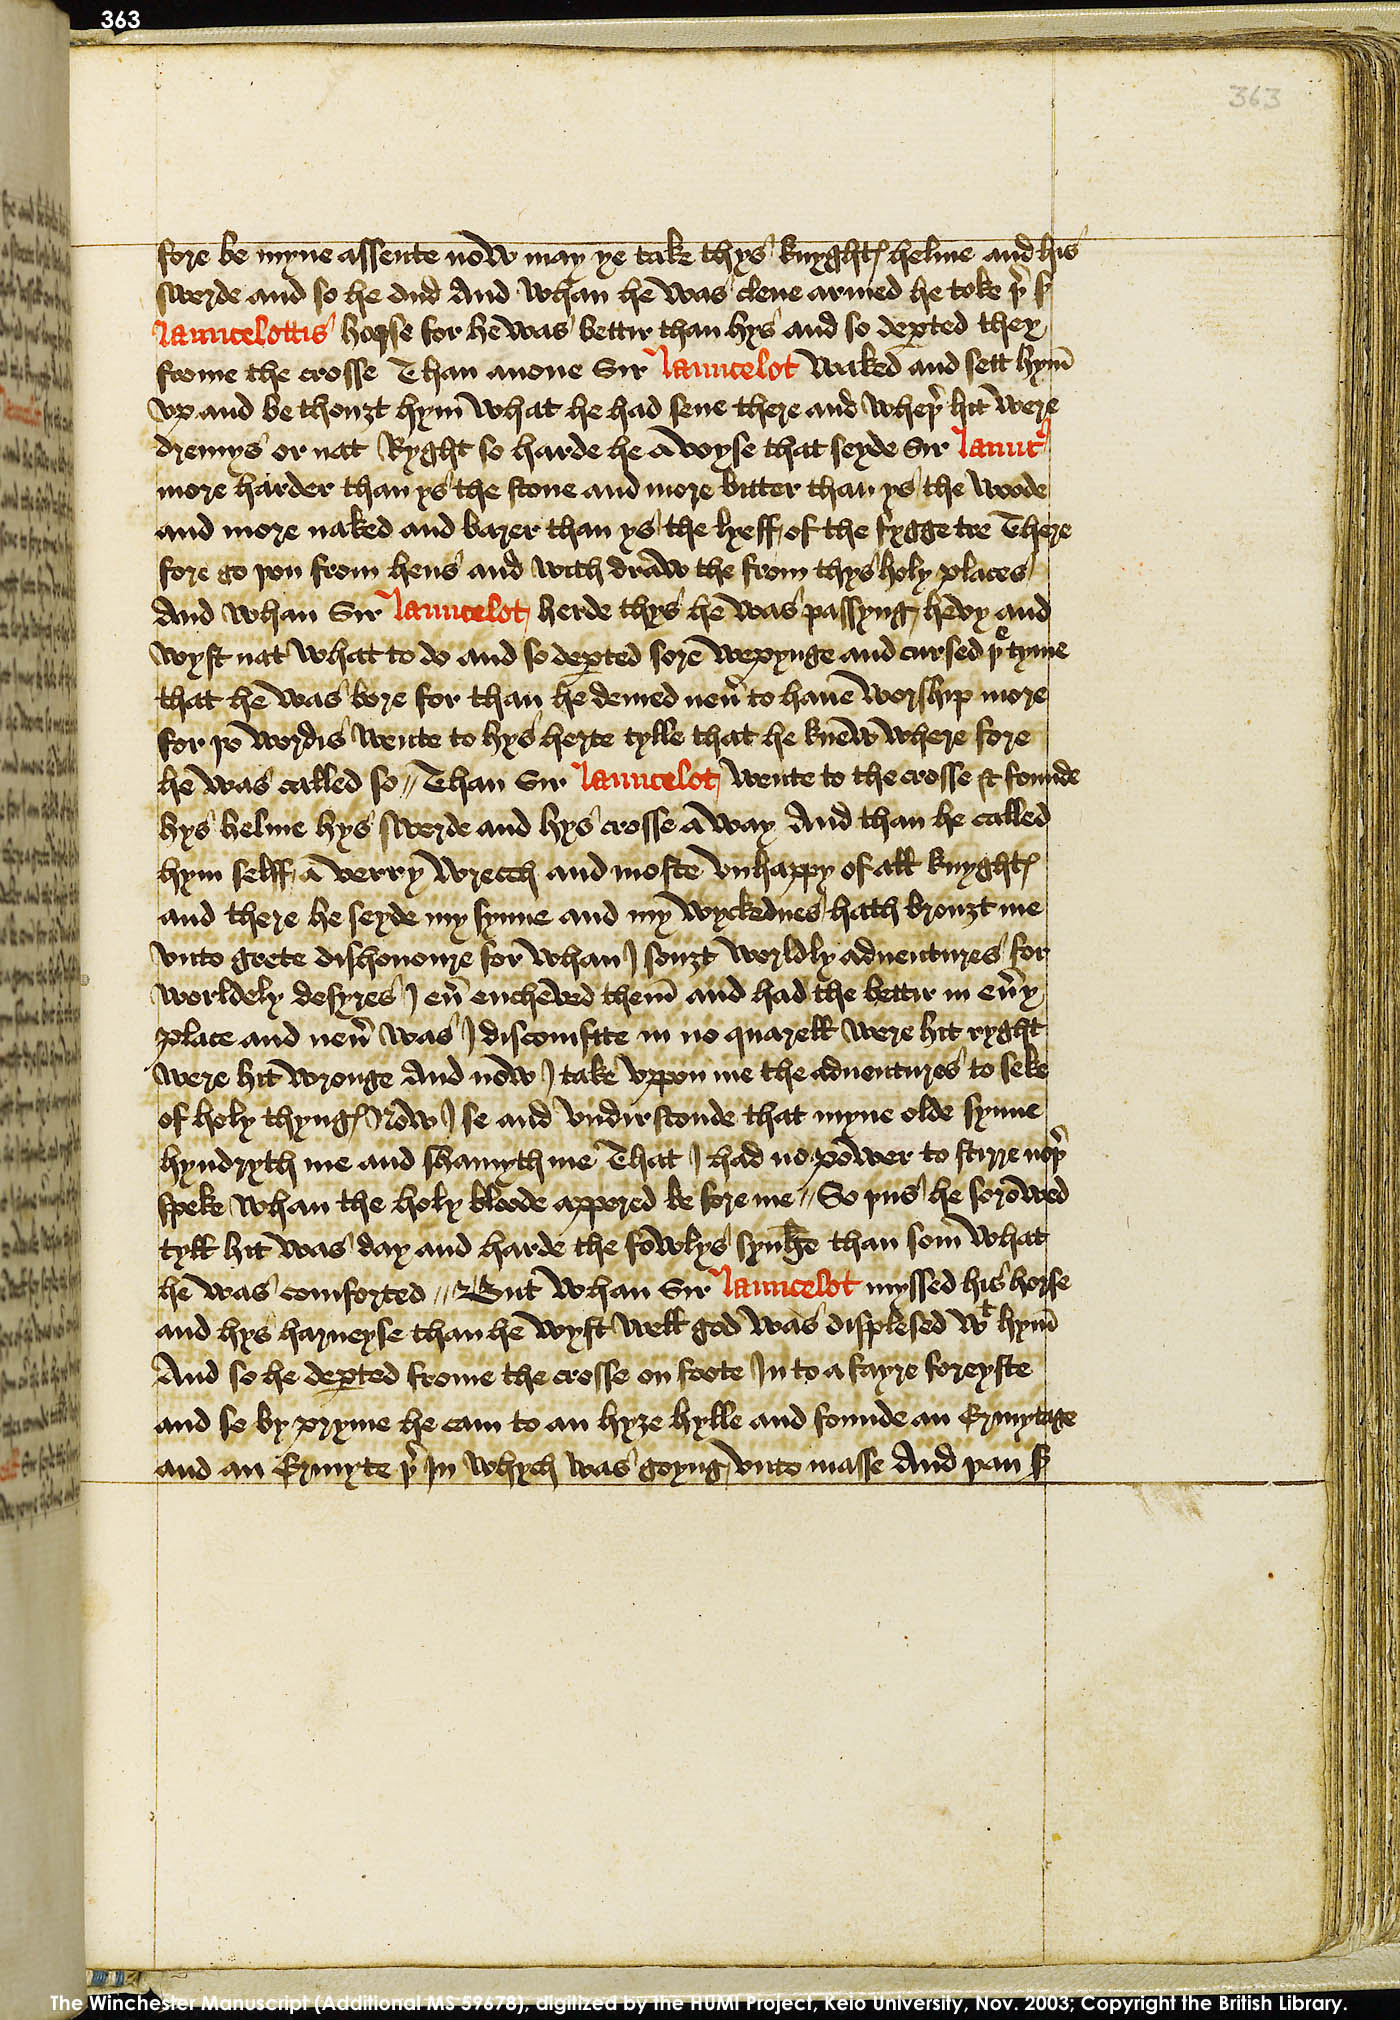 363
363
fore be myne assente now may ye take thys knyghtꝭ helme and his
swerde and so he dud And whan he was clene armed he toke þ̉ S̉
Launcelottis horse for he was bettir than hys and so deꝑted they
frome the crosse Than anone Sir Launcelot waked and sett hym̄
vp and be thouȝt hym what he had sene there and wheþ̉ hit were
dremys or nat Ryght so harde he a voyse that seyde Sir Launc̉
more harder than ys the stone and more bitter than ys the woode
and more naked and barer than ys the lyeff of the fygge tre There
fore go þou from hens and with draw the from thys holy places
And whan Sir Launcelot herde thys he was passyng hevy and
wyst nat what to do and so deꝑted sore wepynge and cursed þͤ tyme
that he was bore for than he demed neũ to haue worship more
for þo wordis wente to hys herte tylle that he knew where fore
he was called so // Than Sir Launcelot wente to the crosse & founde
hys helme hys swerde and hys crosse a way And than he called
hym selff a verry wrecch and moste vnhappy of all knyghtꝭ
and there he seyde my synne and my wyckednes hath brouȝt me
vnto grete dishonoure for whan I souȝt worldly aduentures for
worldely desyres I eũ encheved them̄ and had the bettir in eũy
place and neũ was I discomfite in no quarell were hit ryght
were hit wronge And now I take vppon me the aduentures to seke
of holy thyngꝭ Now I se and vndirstonde that myne olde synne
hyndryth me and shamyth me That I had no power to stirre noþ̉
speke whan the holy bloode appered be fore me // So þus he sorowed
tyll hit was day and harde the fowlys synge than som what
he was comforted // But whan Sir Launcelot myssed his horse
and hys harneyse than he wyst well god was displesed wᵗ hym̄
And so he deꝑted frome the crosse on foote In to a fayre foreyste
and se by pryme he cam to an hyȝe hylle and founde an Ermytage
and an Ermyte þ̉ In whych was goyng vnto masse And þan S̉
The Winchester Manuscript (Additional MS 59678), digitized by the HUMI Project, Keio University, Nov. 2003; Copyright the British Library.